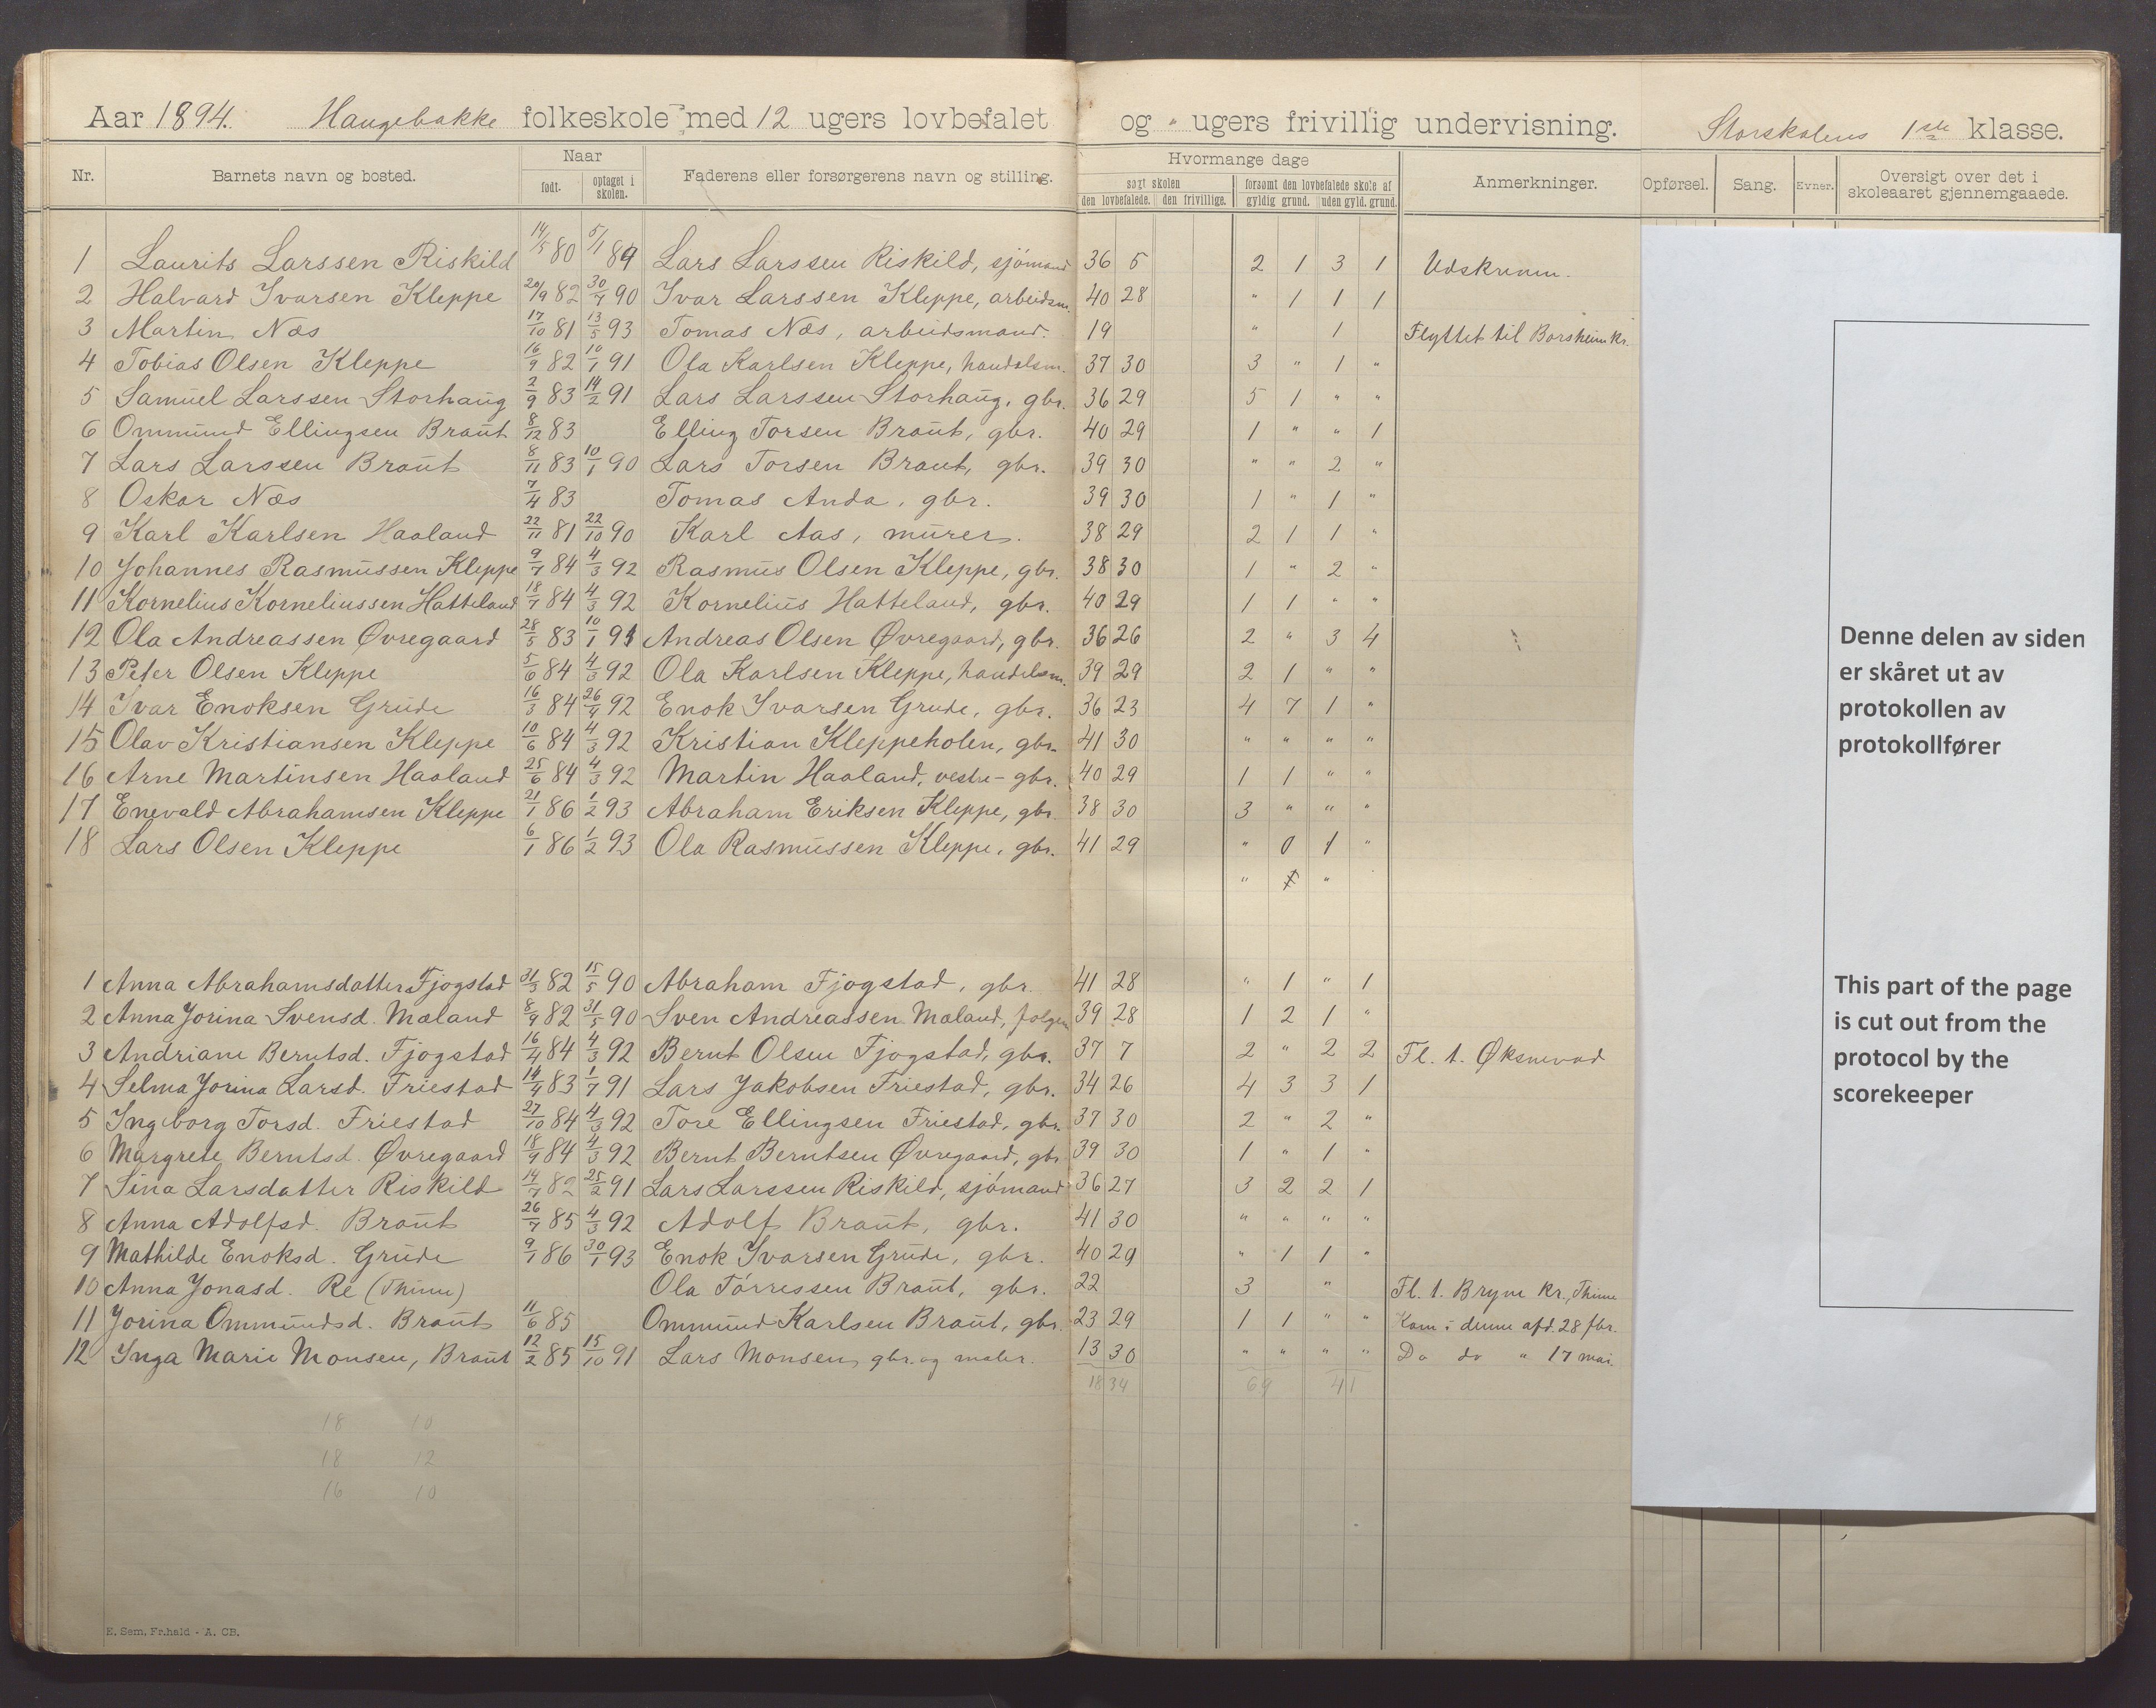 Aar 1894. Haugebakke folkeskole med 12 ugers lovbefalet og " ugers frivillig undervisning. Storskolens 1ste klasse.
Nr. Barnets navn og bosted. Naar født. optaget i skolen. Faderens eller forsørgerens navn og stilling. Hvormange dage søgt skolen den lovbefalede. den frivillige. forsømt den lovbefalede skole af gyldig grund. uden gyld. grund. Anmerkninger. Opførsel. Sang. Evner. Oversigt over det i skoleaaret gjennemgaaede.
1 Laurits Larssen Riskild 14/5 80 5/1 89 Lars Larssen Riskild, sjómand 36 5 2 1 3 1 Udskreven.
2 Halvard Ivarsen Kleppe 20/9 82 30/4 90 Ivar Larssen Kleppe, arbeidsm. 40 28 " 1 1 1
3 Martin Næs 17/10 81 13/5 93 Tomas Næs, arbeidsmand. 19 " 1 Flyttet til Borsheim kr.
4 Tobias Olsen Kleppe 16/9 82 10/1 91 Ola Karlsen Kleppe, handelsm. 37 30 3 " 1 "
5 Samuel Larssen Storhaug 2/9 83 14/2 91 Lars Larssen Storhaug, gbr. 36 29 5 1 " "
6 Ommund Ellingsen Braut 8/12 83 Elling Torsen Braut, gbr. 40 29 1 " " 1
7 Lars Larssen Braut 8/11 83 10/1 90 Lars Torsen Braut, gbr. 39 30 " " 2 "
8 Oskar Næs 7/4 83 Tomas Anda, gbr. 39 30 1 " 1 "
9 Karl Karlsen Haaland 22/11 81 22/10 90 Karl Aas, murer. 38 29 2 1 1 "
10 Johannes Rasmussen Kleppe 9/7 84 4/3 92 Rasmus Olsen Kleppe, gbr. 38 30 1 " 2 "
11 Kornelius Korneliussen Hatteland 18/7 84 4/3 92 Kornelius Hatteland, gbr. 40 29 1 1 " "
12 Ola Andreassen Øvregaard 28/5 83 10/1 91 Andreas Olsen Øvregaard, gbr. 36 26 2 " 3 4
13 Peter Olsen Kleppe 5/6 84 4/3 92 Ola Karlsen Kleppe, handelsm. 39 29 2 1 " "
14 Ivar Enoksen Grude 16/3 84 26/4 92 Enok Ivarsen Grude, gbr. 36 23 4 7 1 "
15 Olav Kristiansen Kleppe 10/6 84 4/3 92 Kristian Kleppeholen, gbr. 41 30 " " " "
16 Arne Martinsen Haaland 25/6 84 4/3 92 Martin Haaland, vestre - gbr. 40 29 1 1 " "
17 Enevald Abrahamsen Kleppe 21/1 86 1/2 93 Abraham Eriksen Kleppe, gbr. 38 30 3 " " "
18 Lars Olsen Kleppe 6/1 86 1/2 93 Ola Rasmussen Kleppe, gbr. 41 29 " 0 1 "
" "
1 Anna Abrahamsdatter Fjogstad 31/3 82 15/5 90 Abraham Fjogstad, gbr. 41 28 " 1 " 1
2 Anna Jorina Svensd. Mæland 8/9 82 31/5 90 Sven Andreassen Mæland, 39 28 1 2 1 "
3 Andriane Berntsd. Fjogstad 16/4 84 4/3 92 Bernt Olsen Fjogstad, gbr. 37 7 2 " 2 2 Fl. t. Øksnevad
4 Selma Jorina Larsd. Friestad 14/4 83 1/7 91 Lars Jakobsen Friestad, gbr. 34 26 4 3 3 1
5 Ingeborg Torsd. Friestad 27/10 84 4/3 92 Tore Ellingsen Friestad, gbr. 37 30 2 " 2 "
6 Margrete Berntsd. Øvregaard 18/9 84 4/3 92 Bernt Berntsen Øvregaard, gbr 39 30 1 " 1 "
7 Sina Larsdatter Riskild 14/7 82 25/2 91 Lars Larssen Riskild, sjómand 36 27 3 2 2 1
8 Anna Adolfsd. Braut 26/7 85 4/3 92 Adolf Braut, gbr. 41 30 " " " "
9 Mathilde Enoksd. Grude 9/1 86 30/1 93 Enok Ivarsen Grude, gbr. 40 29 " 1 1 "
10 Anna Jonasd. Re (Thime) Ola Tórressen Braut, gbr. 22 3 " Fl. t. Bryne kr., Thime
11 Jorina Ommundsd. Braut 11/6 85 Ommund Karlsen Braut, gbr. 23 29 1 1 " " Kom i denne afd. 28 fbr.
12 Inga Marie Monsen, Braut 12/2 85 15/10 91 Lars Monsen, gbr. og maler. 13 30 " " " " Do do " 17 mai.
18 34 69 41
18 10
18 12
16 10
E. Sem, Fr.hald - A. CB.
Denne delen av siden
er skåret ut av
protokollen av
protokollfører
This part of the page
is cut out from the
protocol by the
scorekeeper